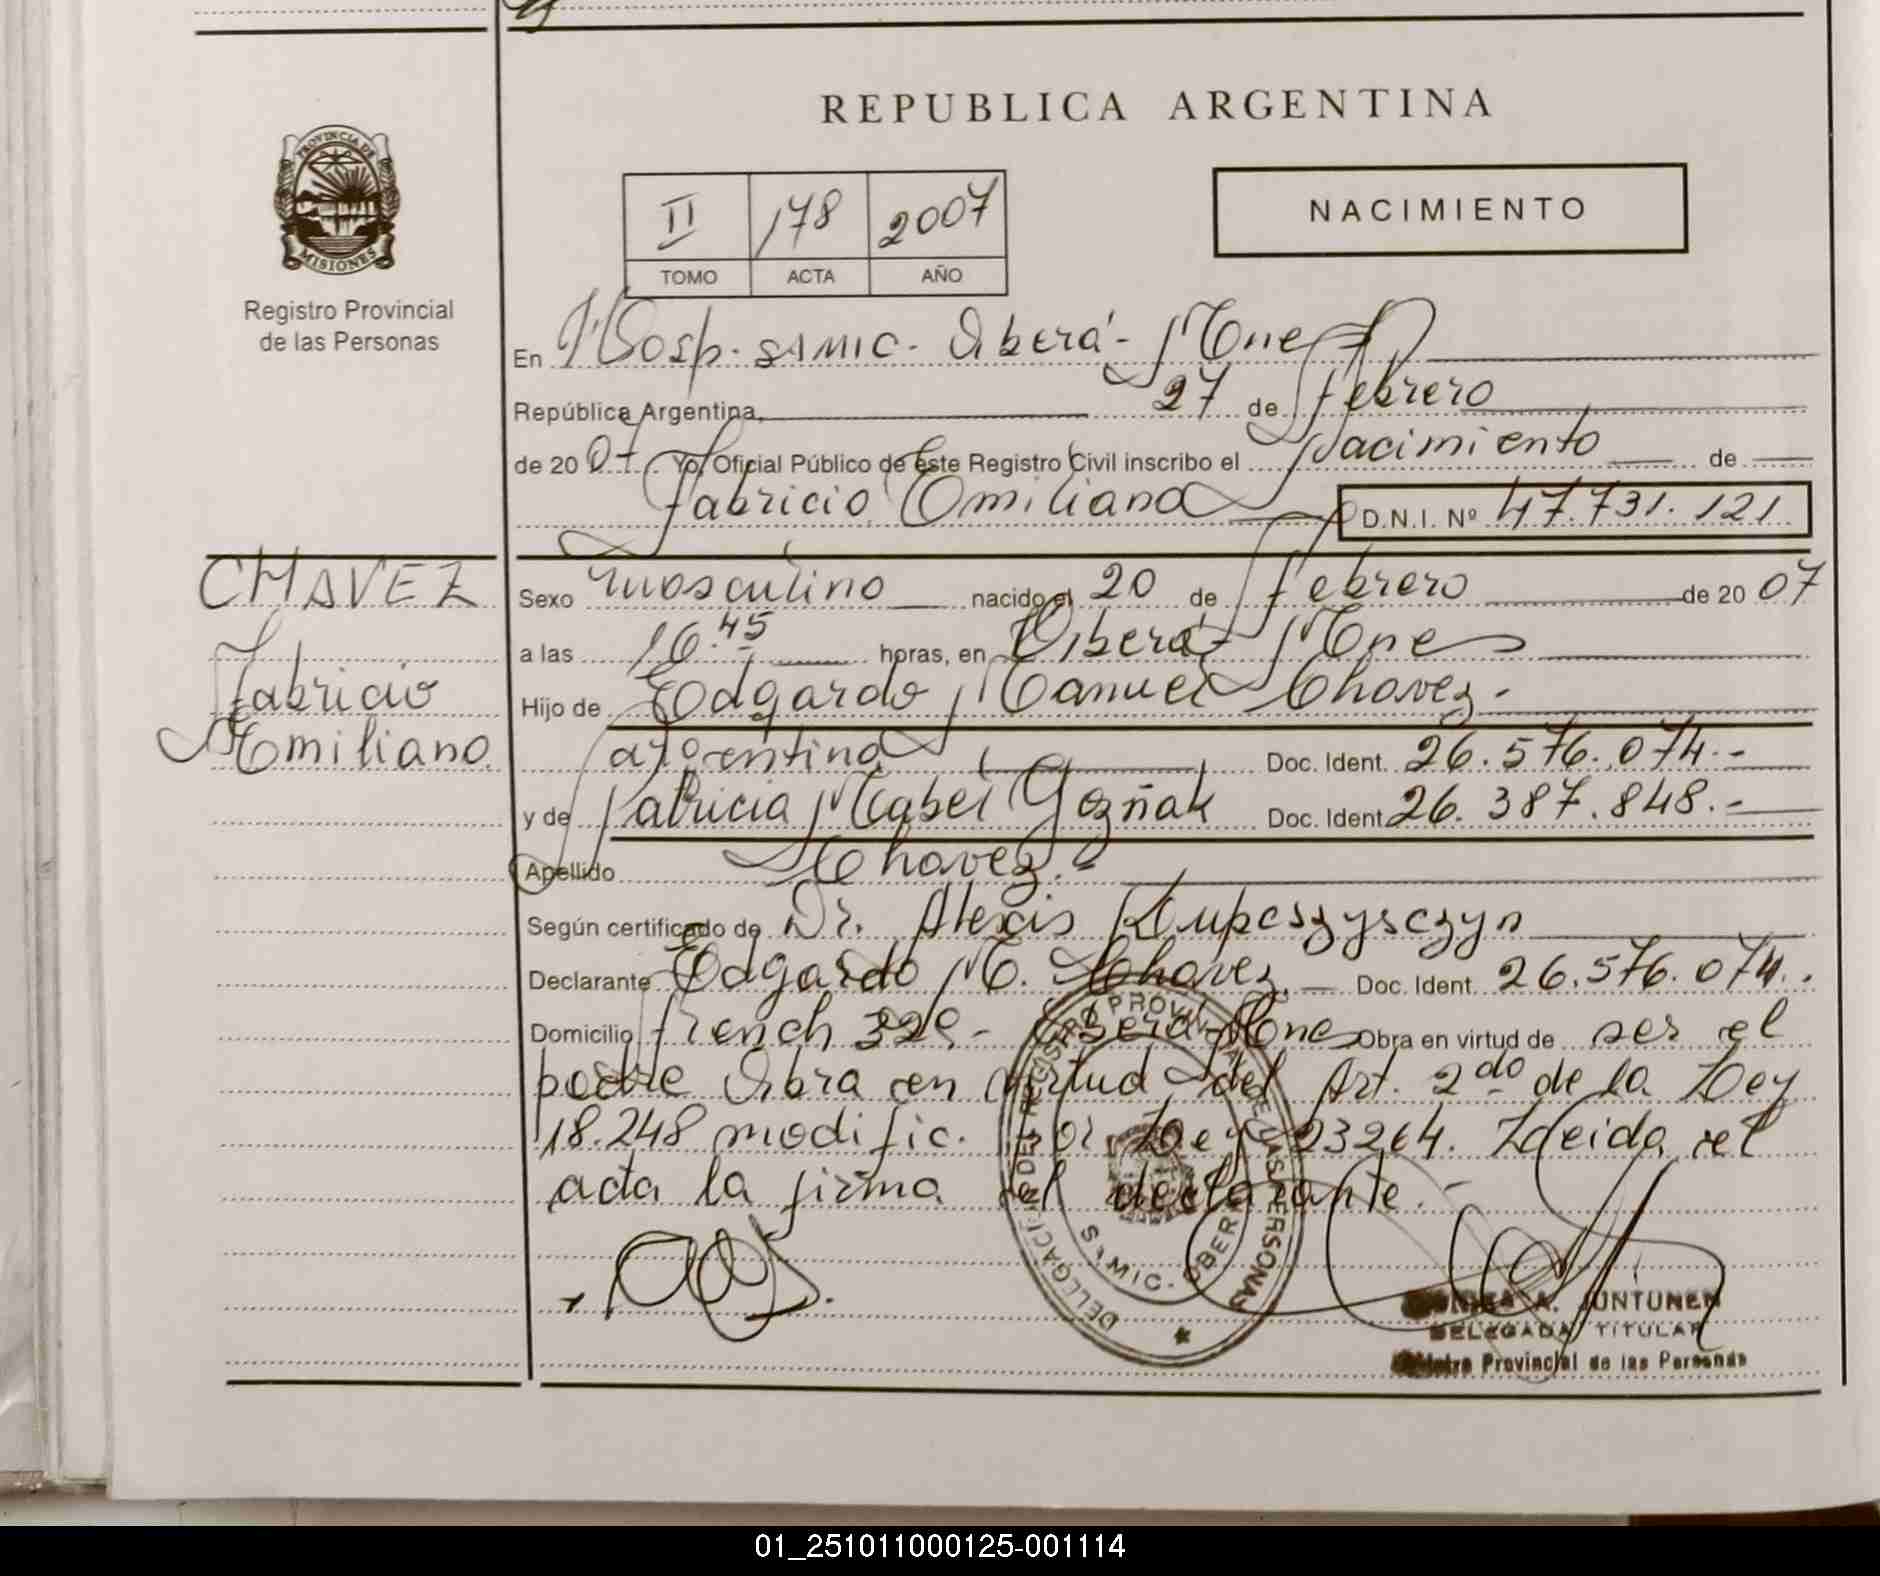 REPUBLICA ARGENTINA
PROVINCIA DE
MISIONES
Registro Provincial
de las Personas
II 178 2007
TOMO ACTA AÑO
NACIMIENTO
En Hosp. SAMIC. Oberá - Mnes
República Argentina, 27 de febrero
de 2007. Yo, Oficial Público de este Registro Civil inscribo el nacimiento de
Fabricio Emiliano D.N.I. Nº 47.731.121
CHAVEZ
Fabricio
Emiliano
Sexo masculino nacido el 20 de febrero de 2007
a las 16.45 horas, en Oberá - Mnes
Hijo de Edgardo Manuel Chavez.-
argentino Doc. Ident. 26.576.074.-
y de Patricia Mabel Gozñak Doc. Ident. 26.387.848.-
Apellido Chavez.-
Según certificado de Dr. Alexis Kupcszysczyn
Declarante Edgardo M. Chavez. Doc. Ident. 26.576.074.
Domicilio french 329.- Oberá - Mnes Obra en virtud de ser el
padre Obra en virtud del Art. 2do de la Ley
18.248 modific. por Ley 23264. Leida el
acta la firma el declarante.-
DELEGACION DEL REGISTRO PROVINCIAL DE LAS PERSONAS
S.A.MIC. OBERA
A. JUNTUNEN
DELEGADA TITULAR
Registro Provincial de las Personas
01_251011000125-001114